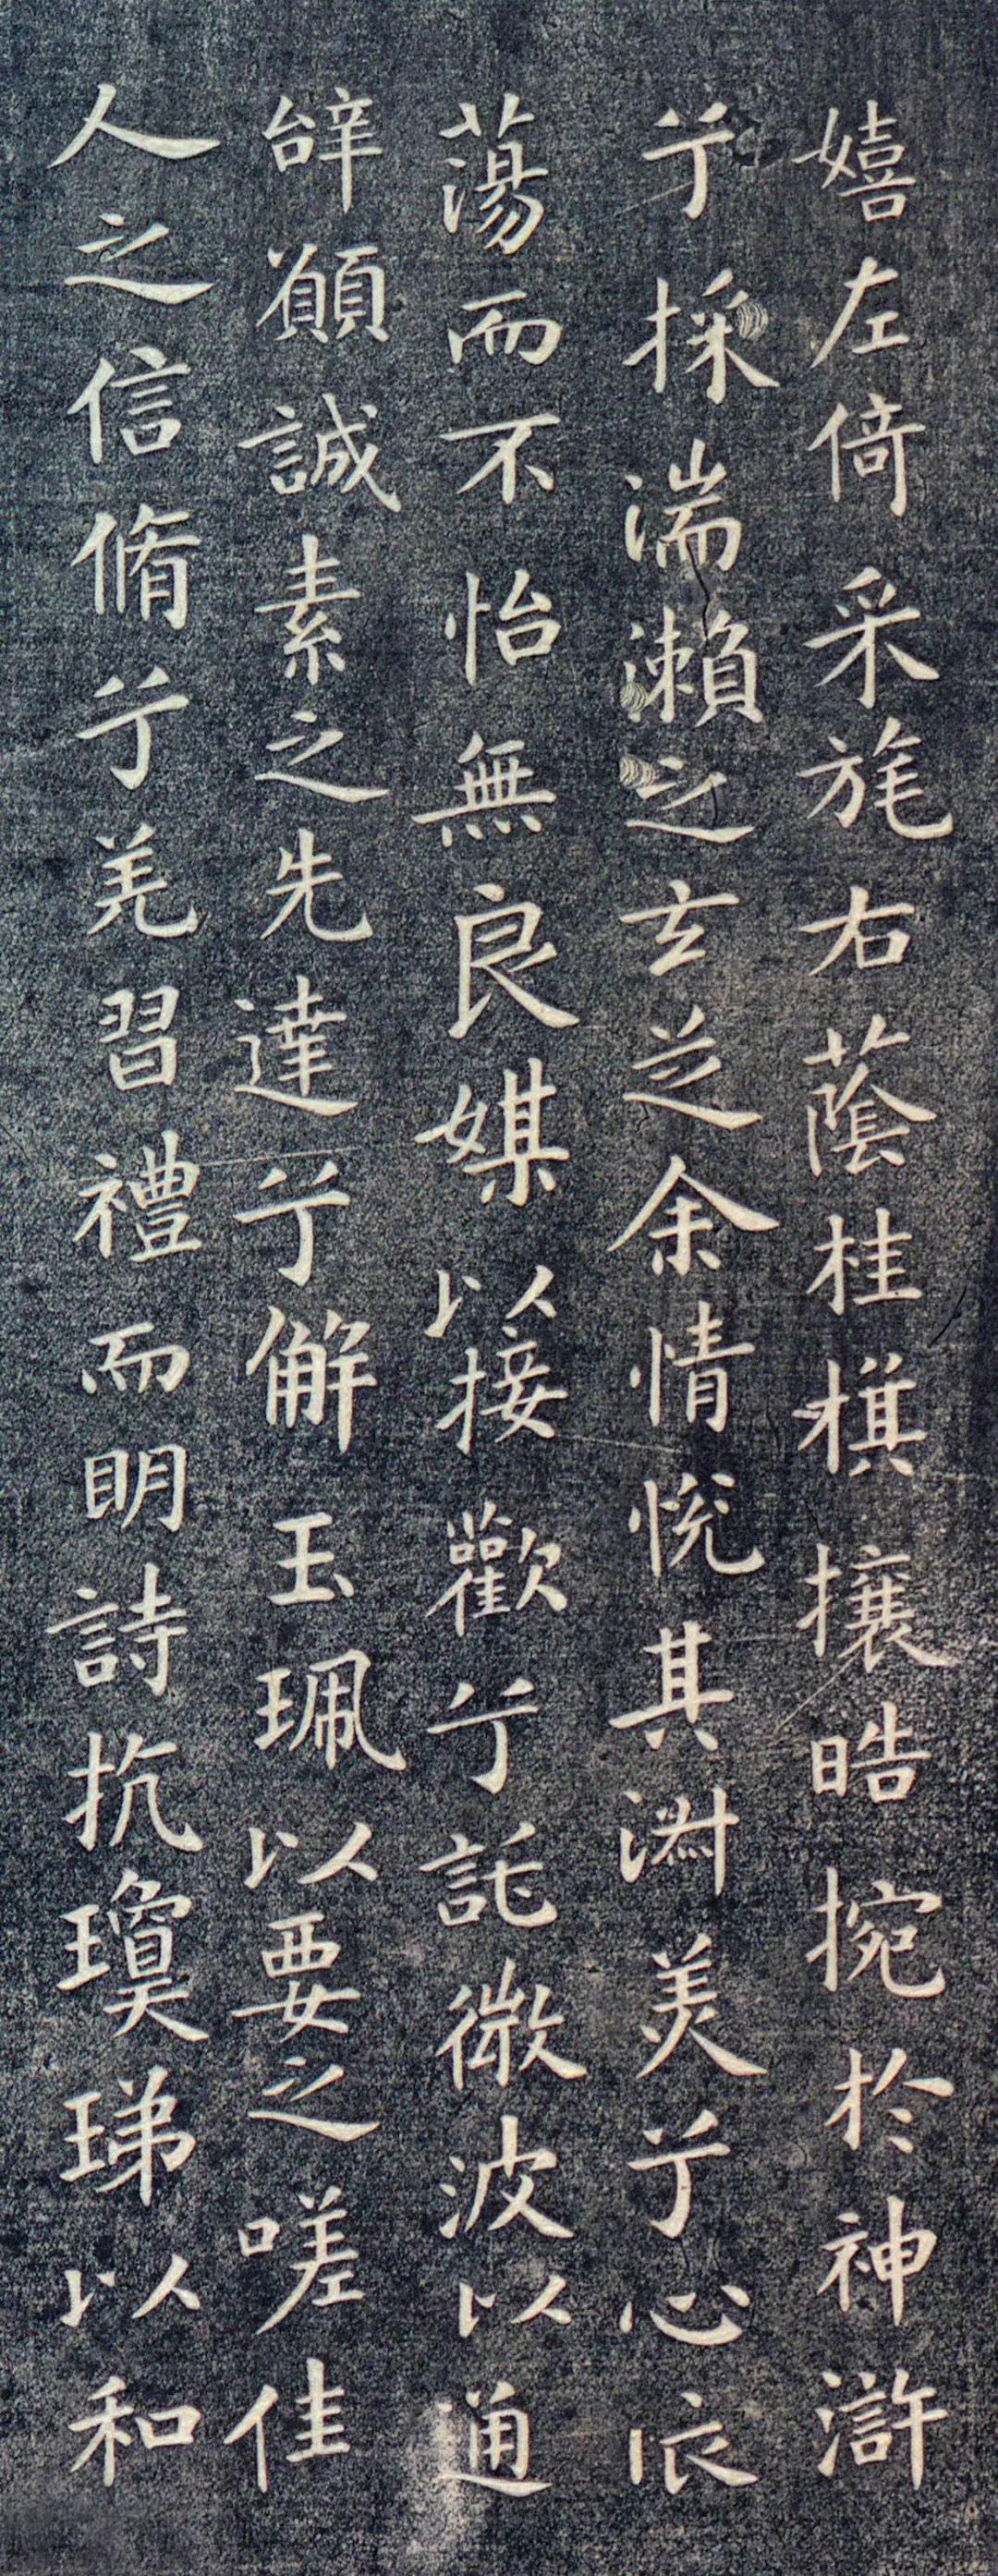 嬉左倚采旄右蔭桂棋攘晧捥於神滸
兮採湍瀨之玄芝余情悅其淵美兮心依
蕩而不怡無良媒以接歡兮託微波以通
辝願誠素之先達兮解玉珮以要之嗟佳
人之信脩兮羌習禮而明詩抗瓊珶以和